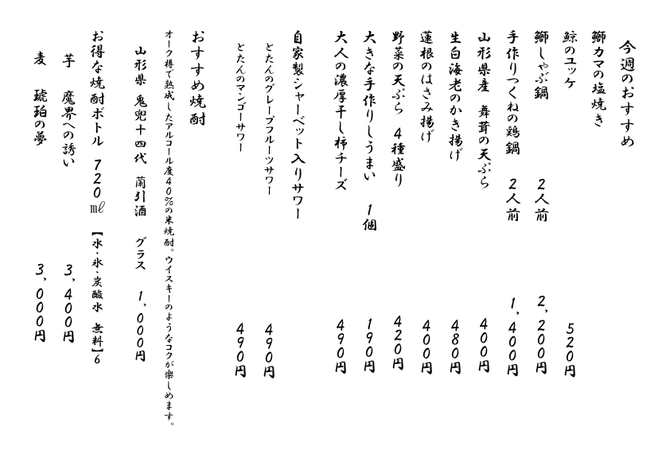 今週のおすすめ
鰤カマの塩焼き
鯨のユッケ 520円
鰤しゃぶ鍋 2人前 2,200円
手作りつくねの鶏鍋 2人前 1,400円
山形県産 舞茸の天ぷら 400円
生白海老のかき揚げ 480円
蓮根のはさみ揚げ 400円
野菜の天ぷら 4種盛り 420円
大きな手作りしうまい 1個 190円
大人の濃厚干し柿チーズ 490円
自家製シャーベット入りサワー
とたんのグレープフルーツサワー 490円
とたんのマンゴーサワー 490円
おすすめ焼酎
オーク樽で熟成したアルコール度40%の米焼酎。ウイスキーのようなコクが楽しめます。
山形県 鬼兜十四代 蘭引酒 グラス 1,000円
お得な焼酎ボトル 720㎖ 【水・氷・炭酸水 無料】6
芋 魔界への誘い 3,400円
麦 琥珀の夢 3,000円